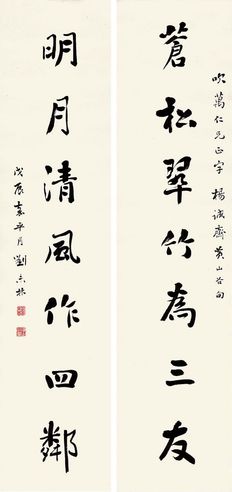 吹萬仁兄正字 楊誠齋黃山谷句
蒼松翠竹爲三友
明月清風作四鄰
戊辰嘉平月 劉